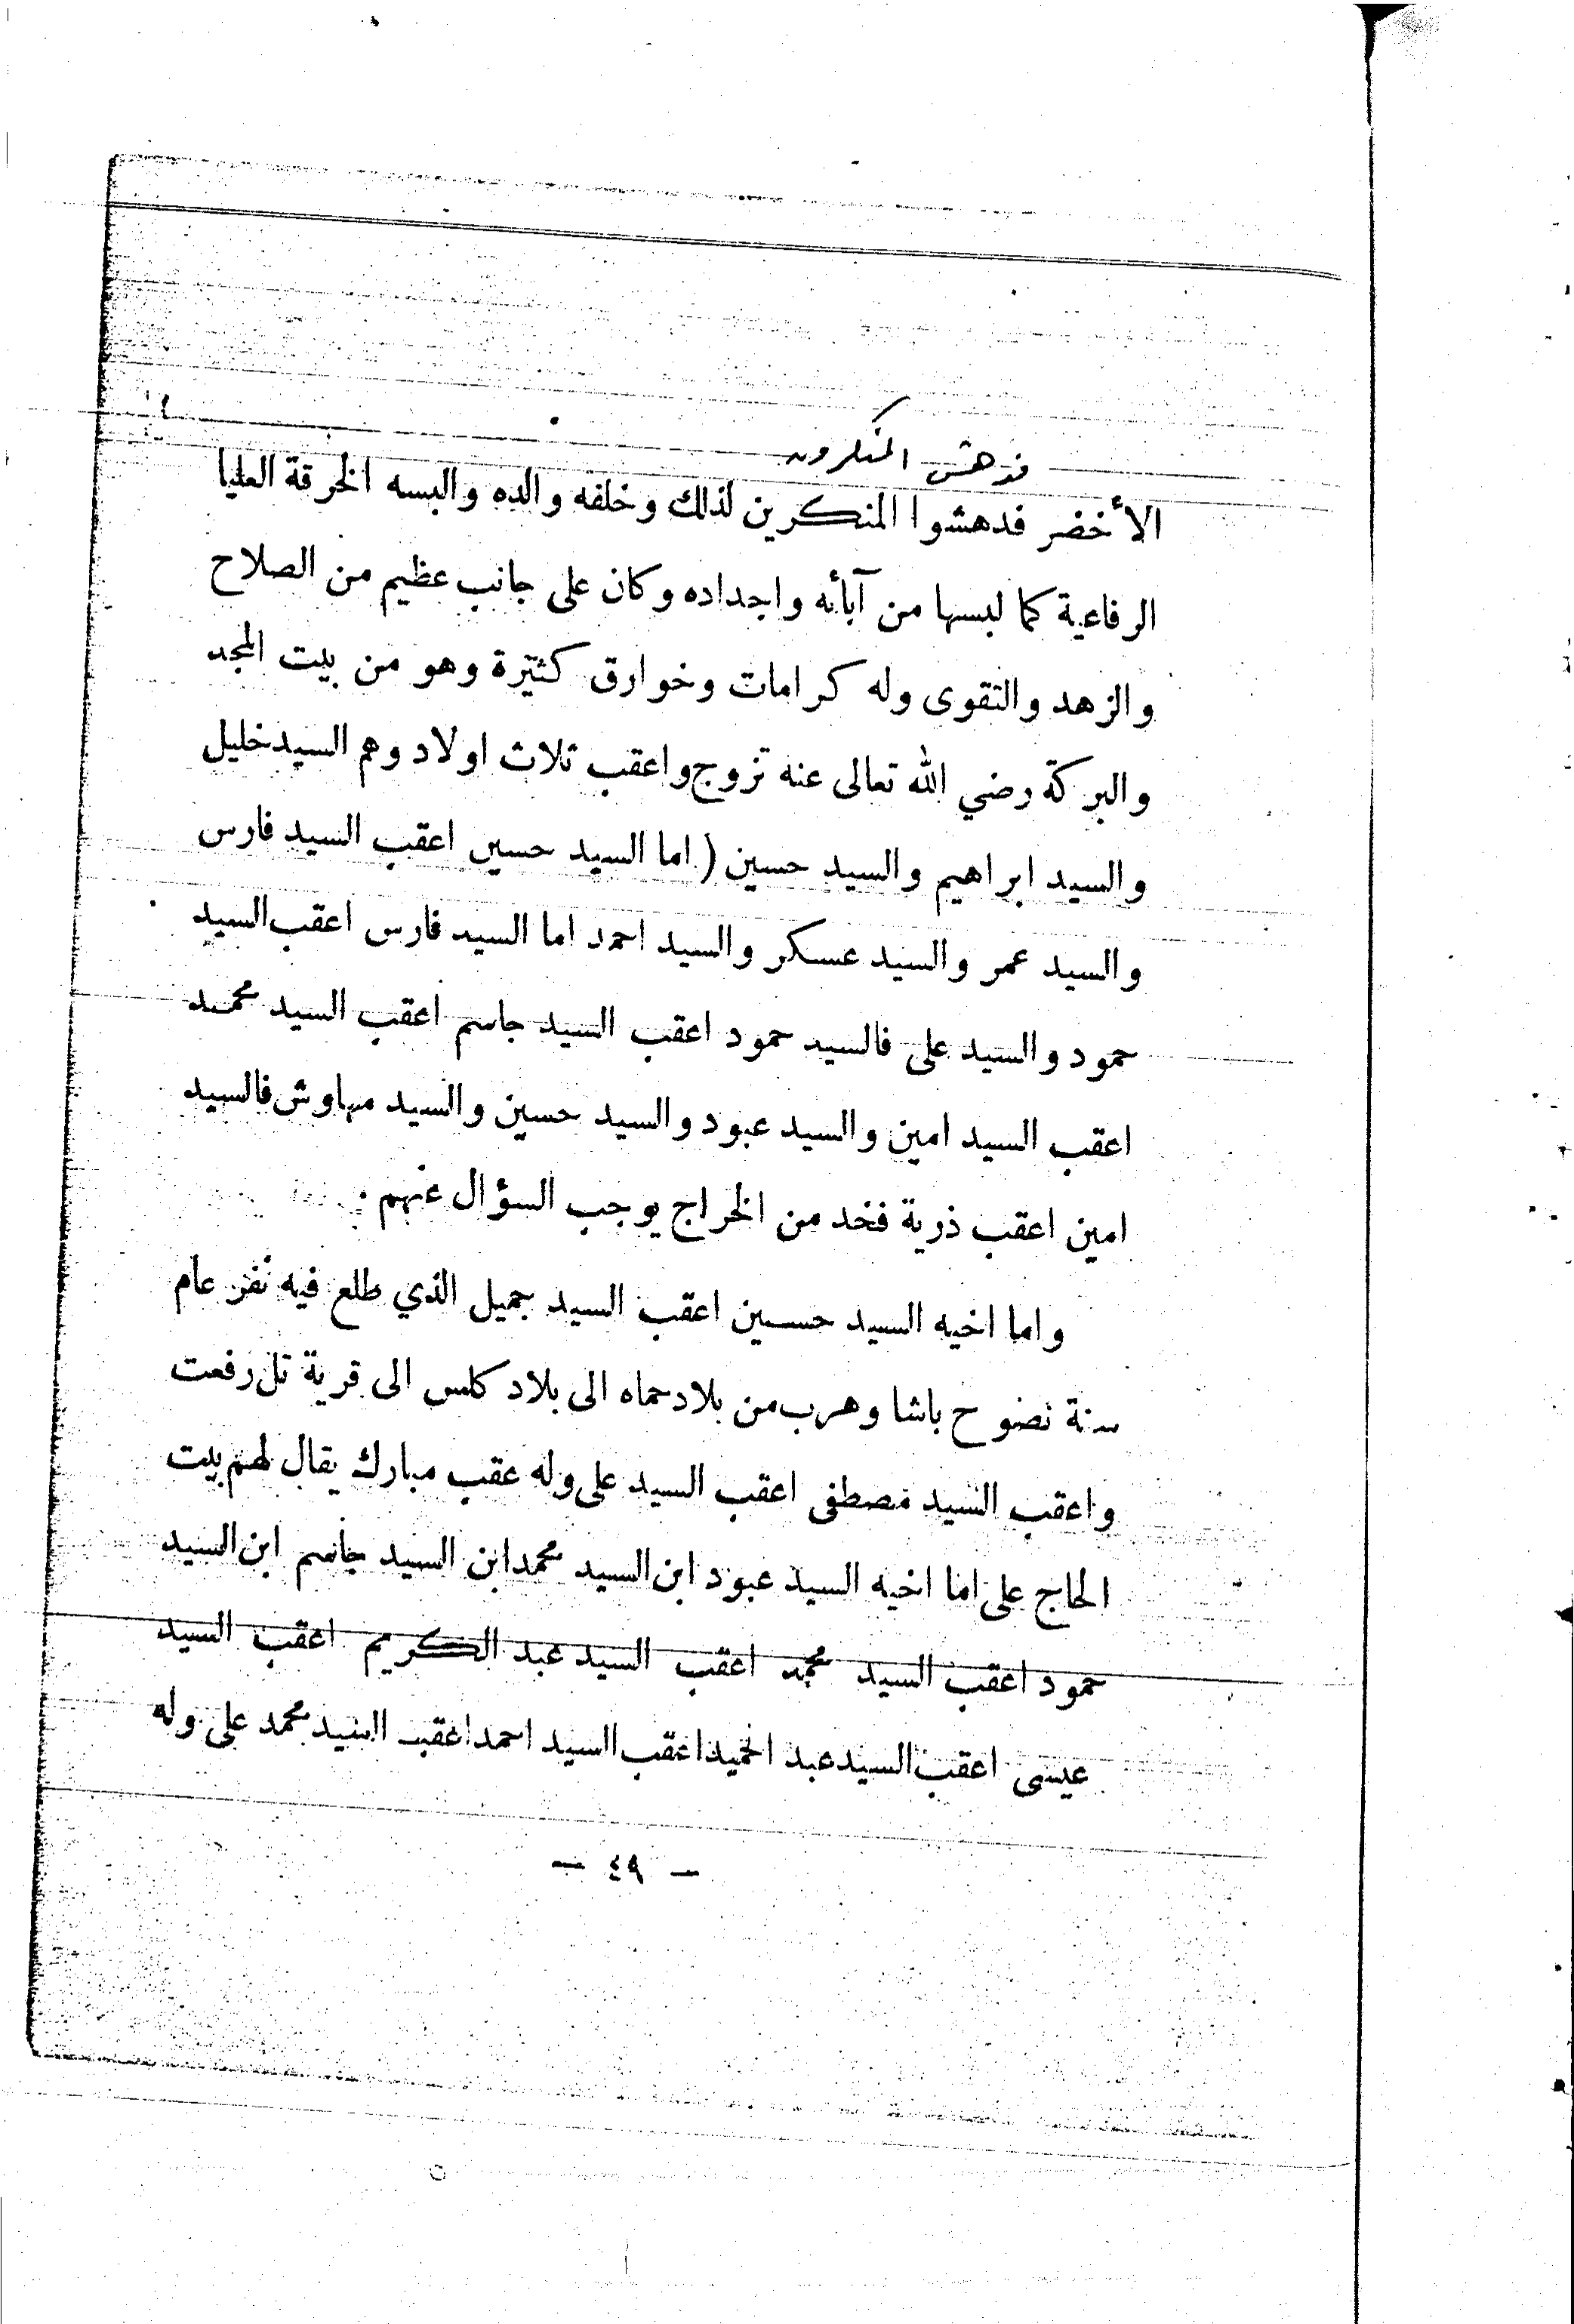 فدهش المنكرون
الأخضر فدهشوا المنكرين لذلك وخلفه والده والبسه الخرقة العليا
الرفاعية كما لبسها من آبأئه واجداده وكان على جانب عظيم من الصلاح
والزهد والتقوى وله كرامات وخوارق كثيرة وهو من بيت المجد
والبركة رضي الله تعالى عنه تزوج واعقب ثلاث اولاد وهم السيد خليل
والسيد ابراهيم والسيد حسين ( اما السيد حسين اعقب السيد فارس
والسيد عمر والسيد عسكر والسيد احمد اما السيد فارس اعقب السيد
حمود والسيد على فالسيد حمود اعقب السيد جاسم اعقب السيد محمد
اعقب السيد امين والسيد عبود والسيد حسين والسيد مهاوش فالسيد
امين اعقب ذرية فخد من الخراج يوجب السؤال عنهم .
واما اخيه السيد حسين اعقب السيد جميل الذي طلع فيه نفر عام
سنة نضوح باشا وهرب من بلاد حماه الى بلاد كلس الى قرية تل رفعت
واعقب السيد مصطفى اعقب السيد على وله عقب مبارك يقال لهم بيت
الحاج على اما اخيه السيد عبود ابن السيد محمد ابن السيد جاسم ابن السيد
حمود اعقب السيد محمد اعقب السيد عبد الكريم اعقب السيد
عيسى اعقب السيد عبد الحميد اعقب السيد احمد اعقب السيد محمد على وله
– ٤٩ –